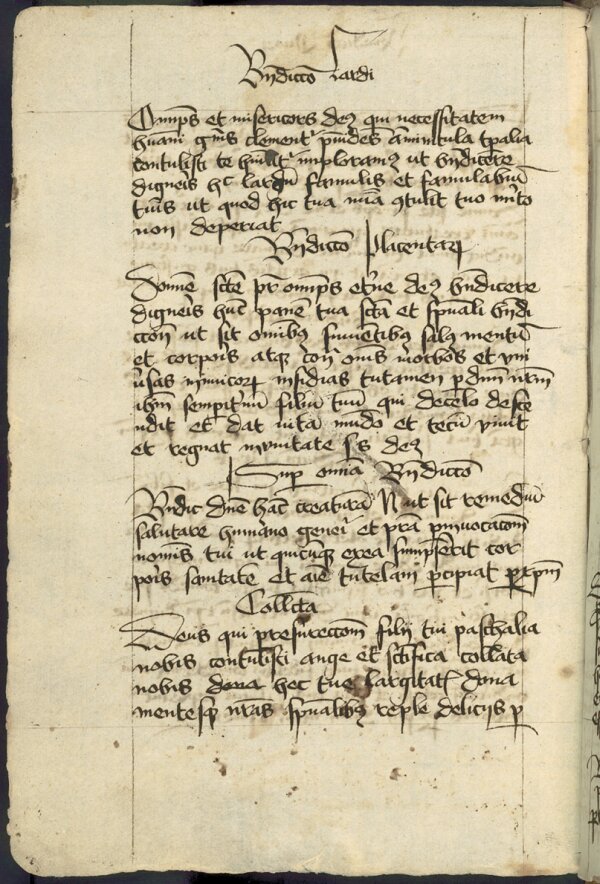 Bn̄dictō lardi
Omps et misericors deꝰ qui necessitatem
hūani gn̄is clement͛ p̄uidēs am̄nicula tp̄alia
contulisti te hūilit͛ imploramꝰ ut bn̄dicere
digneis hc̄ lardū famulis et famulabuū
tuis ut quod hic tua mīa ꝯtulit tuo mīto
non depereat
Bn̄dictō placentaꝝ
Domīe sct̄e pr̄ omps et͛ne deꝰ bn̄dicere
digneris hūc panē tua sctā et sp̄uali bn̄di
ctōn ut sit om̄ibꝰ sumētibꝰ salꝰ mentiū
et corpois atqꝫ con̄ om̄s morbos et vni
ūsas inimicoꝝ insidias tutamen p dn̄m nr̄m
ihm̄ sempit͛nū filiū tuū qui decelo desce
ndit et dat uitā mūdo et tecū viuit
et regnat invnitate s̄s deꝰ
Sup omīa Bn̄dictō
Bn̄dic dn̄e hāc creaturā N ut sit remediū
salutare humano genei͛ et p̄ta p̄ inuocacōm
nomīs tui ut quicūqꝫ exea sumpserit cor
pois sanitatē et aīe tutelam p̄cipiat p xp̄m
Coll̄cta
Deus qui p̄resurectōm filij tui paschalia
nobis contulisti auge et sc̄tifica collata
nobis dona hec tue largitat͛ dona
mentesqꝫ nr̄as sp̄ualibꝰ reple delicijs p